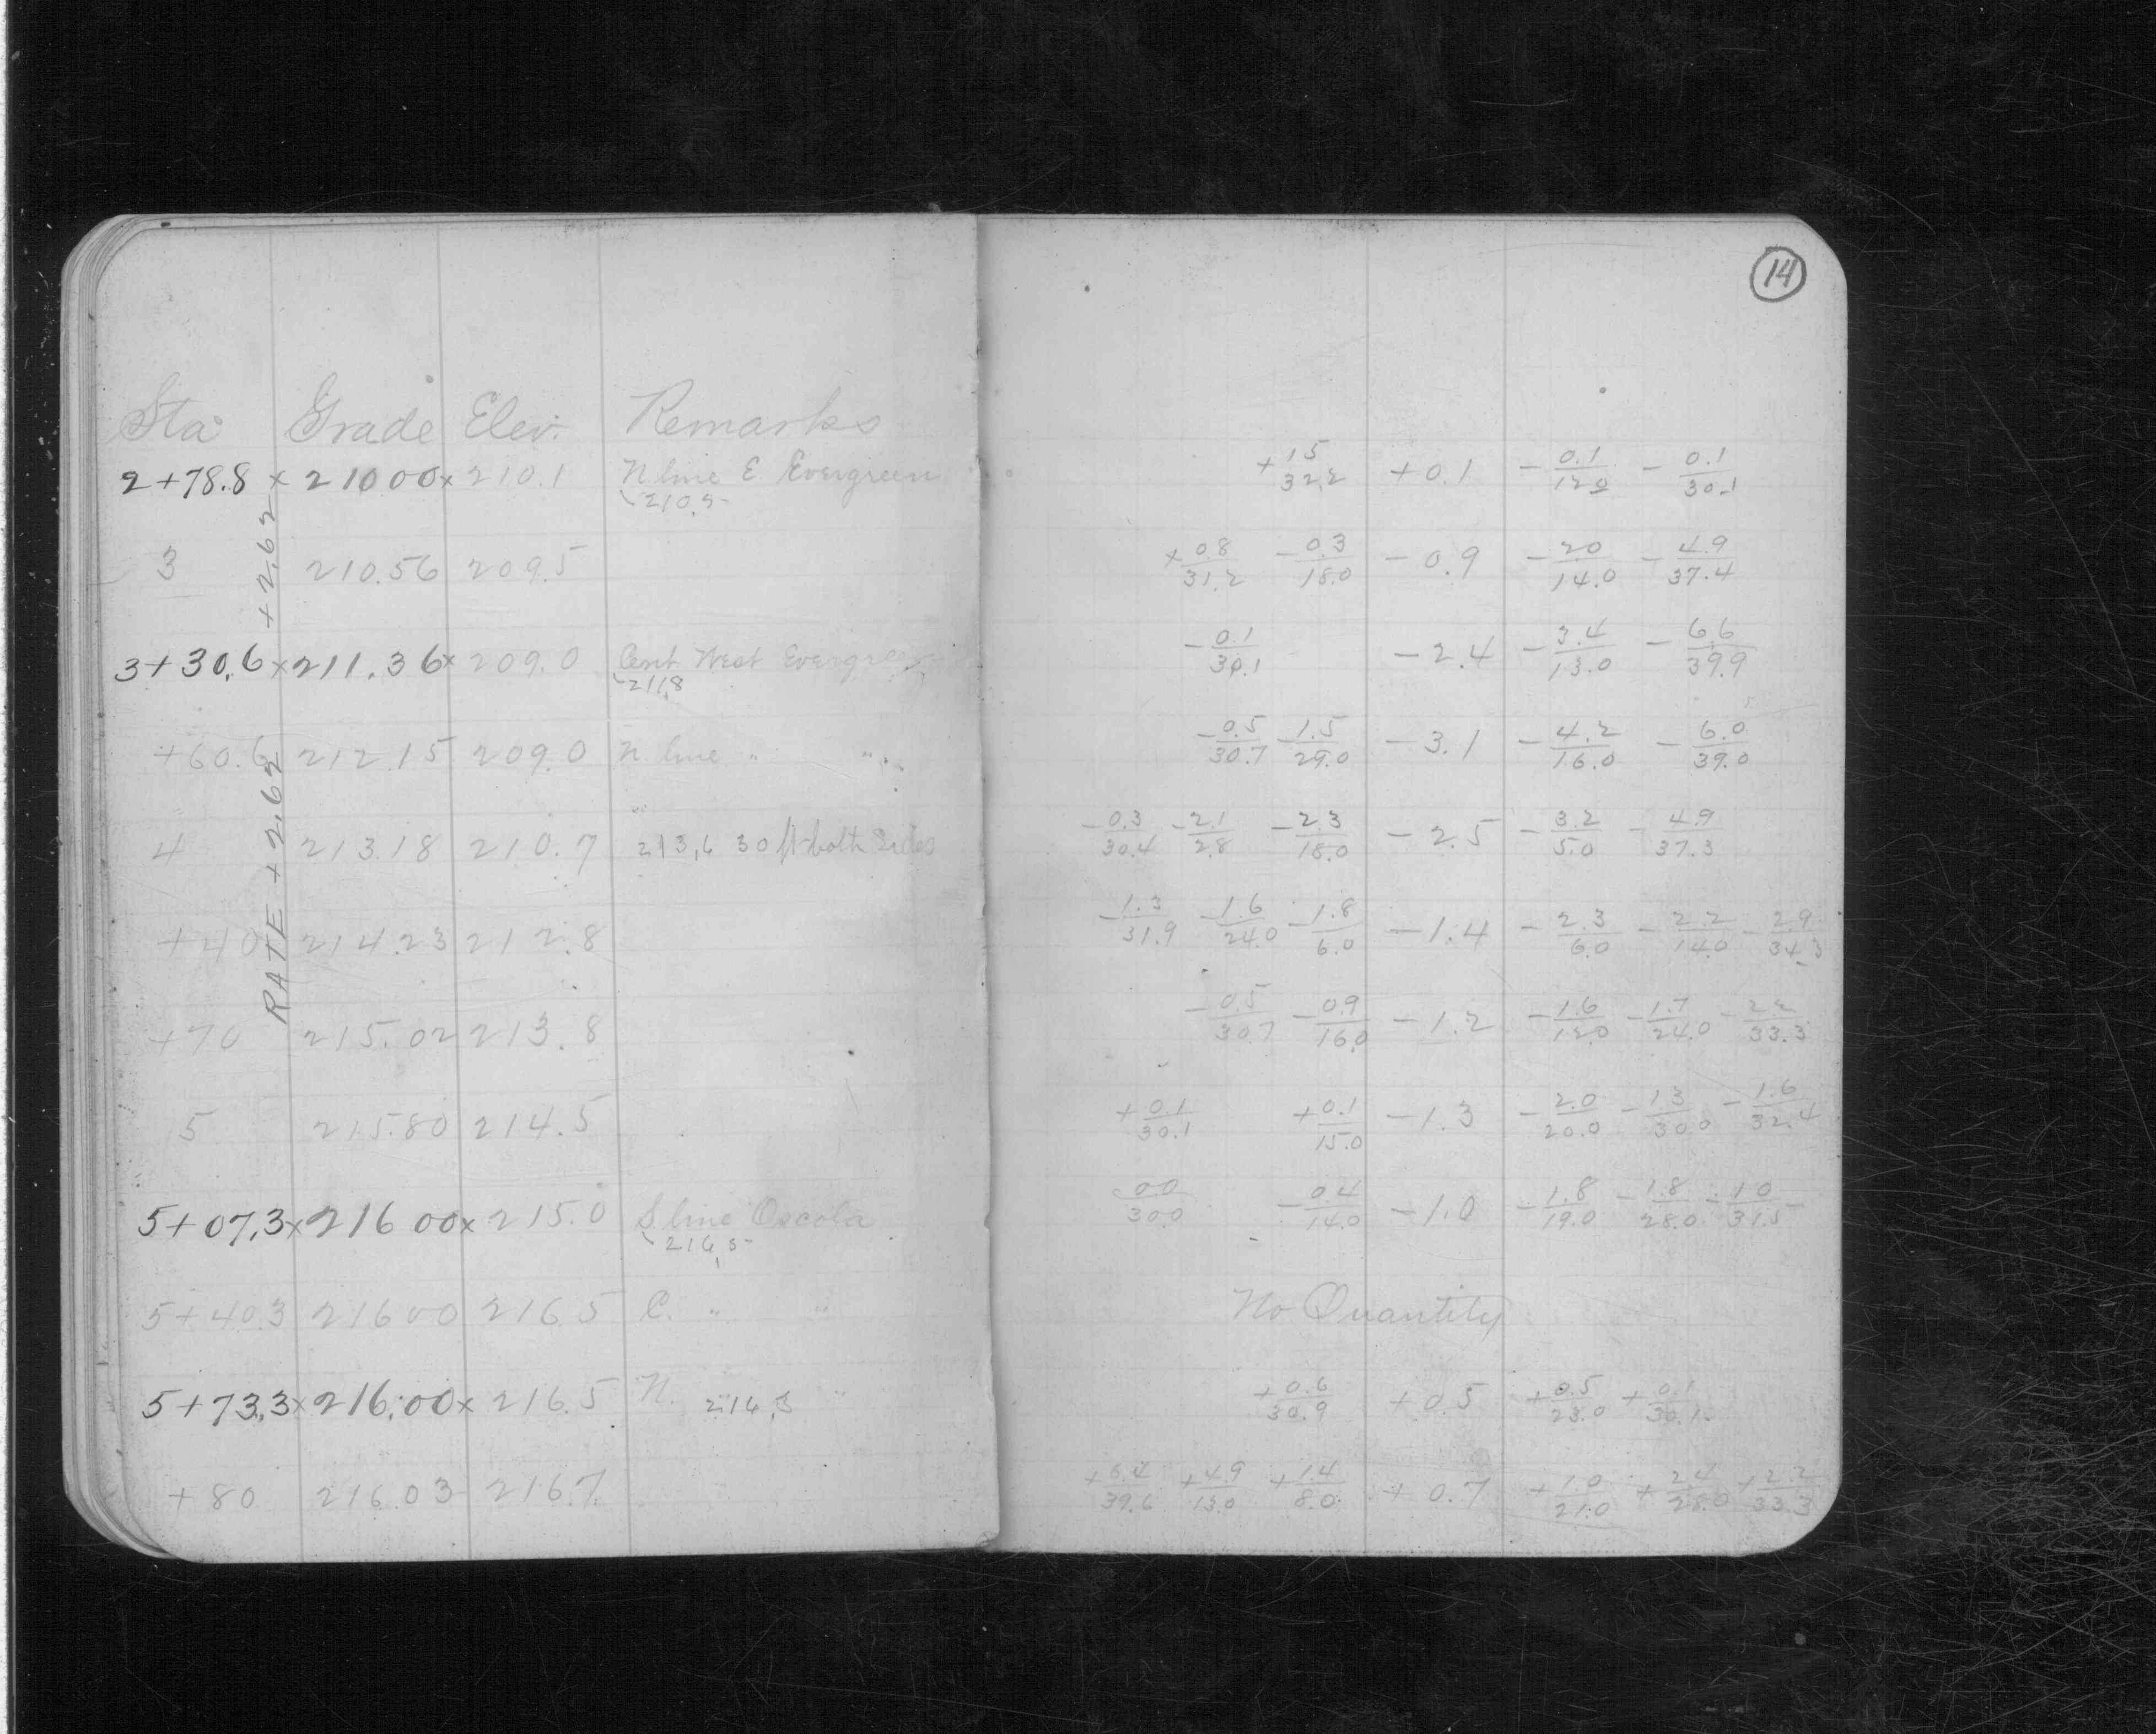 14
Sta Grade Elev. Remarks
2+78.8 x 210 00 x 210.1 N line E Evergreen +1.5/32.2 +0.1 -0.1/12.0 -0.1/30.1
210.5
3 210.56 209.5 +0.8/31.2 -0.3/18.0 -0.9 -2.0/14.0 -4.9/37.4
3+30.6 x 211.36 x 209.0 Cent West Evergreen -0.1/30.1 -2.4 -3.4/13.0 -6.6/39.9
211.8
+60.6 212.15 209.0 N. line " " -0.5/30.7 -1.5/29.0 -3.1 -4.2/16.0 -6.0/39.0
4 213.18 210.7 213.6 30 ft both Sides -0.3/30.4 -2.1/2.8 -2.3/18.0 -2.5 -3.2/5.0 -4.9/37.3
+40 214.23 212.8 -1.3/31.9 -1.6/24.0 -1.8/6.0 -1.4 -2.3/6.0 -2.2/14.0 -2.9/34.3
+70 215.02 213.8 -0.5/30.7 -0.9/16.0 -1.2 -1.6/12.0 -1.7/24.0 -2.2/33.3
5 215.80 214.5 +0.1/30.1 +0.1/15.0 -1.3 -2.0/20.0 -1.3/30.0 -1.6/32.4
5+07.3 x 216 00 x 215.0 S. line Osceola 0.0/30.0 -0.4/14.0 -1.0 -1.8/19.0 -1.8/28.0 -1.0/31.5
216.5
5+40.3 216 00 216.5 C. " " No Quantity
5+73.3 x 216.00 x 216.5 N. 216.3 " +0.6/30.9 +0.5 +0.5/23.0 +0.1/30.1
+80 216.03 216.7 +6.4/39.6 +4.9/13.0 +1.4/8.0 +0.7 +1.0/21.0 +2.4/28.0 +2.2/33.3
RATE +2.62 +2.62